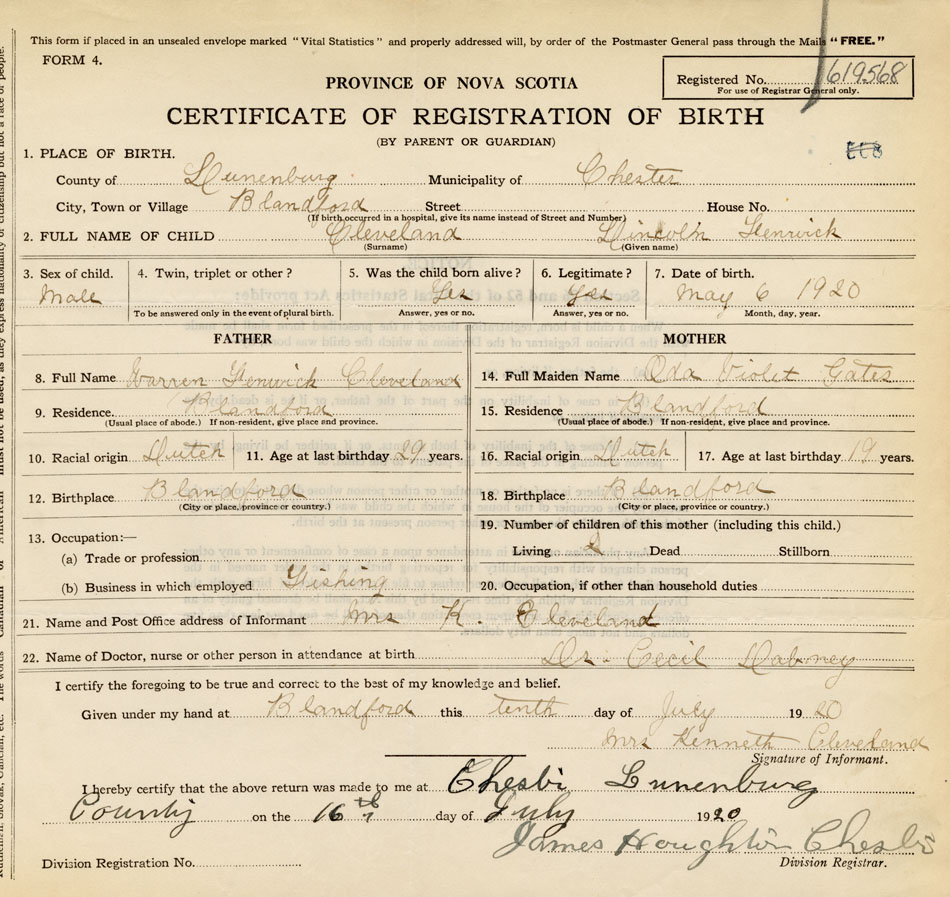 This form if placed in an unsealed envelope marked "Vital Statistics" and properly addressed will, by order of the Postmaster General pass through the Mails "FREE."
FORM 4.
PROVINCE OF NOVA SCOTIA
Registered No. 619568
For use of Registrar General only.
CERTIFICATE OF REGISTRATION OF BIRTH
(BY PARENT OR GUARDIAN)
1. PLACE OF BIRTH.
County of Lunenburg Municipality of Chester
City, Town or Village Blandford Street House No.
(If birth occurred in a hospital, give its name instead of Street and Number)
2. FULL NAME OF CHILD Cleveland Lincoln Fenwick
(Surname) (Given name)
3. Sex of child. 4. Twin, triplet or other? 5. Was the child born alive? 6. Legitimate? 7. Date of birth.
Male Yes Yes May 6 1920
To be answered only in the event of plural birth. Answer, yes or no. Answer, yes or no. Month, day, year.
FATHER MOTHER
8. Full Name Warren Fenwick Cleveland 14. Full Maiden Name Oda Violet Gates
9. Residence. Blandford 15. Residence Blandford
(Usual place of abode.) If non-resident, give place and province. (Usual place of abode.) If non-resident, give place and province.
10. Racial origin Dutch 11. Age at last birthday 29 years. 16. Racial origin Dutch 17. Age at last birthday 19 years.
12. Birthplace Blandford 18. Birthplace Blandford
(City or place, province or country.) (City or place, province or country.)
19. Number of children of this mother (including this child.)
13. Occupation:—
Living 2 Dead Stillborn
(a) Trade or profession
(b) Business in which employed Fishing 20. Occupation, if other than household duties
21. Name and Post Office address of Informant Mrs K. Cleveland
22. Name of Doctor, nurse or other person in attendance at birth Dr. Cecil
I certify the foregoing to be true and correct to the best of my knowledge and belief.
Given under my hand at Blandford this tenth day of July 1920
Mrs Kenneth Cleveland
Signature of Informant.
I hereby certify that the above return was made to me at Lunenburg
County on the 16th day of July 1920
James Houghton
Division Registration No. Division Registrar.